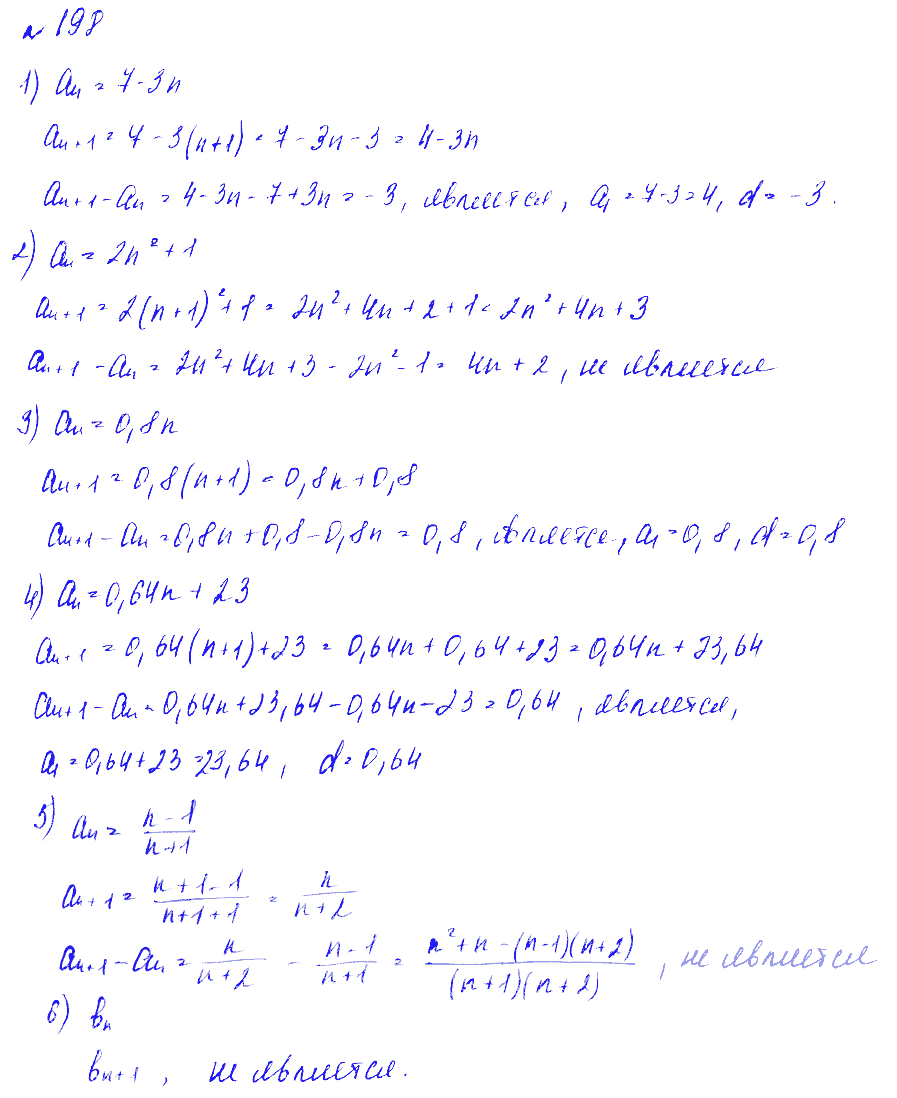 № 198
1) aₙ = 7 - 3n
aₙ₊₁ = 7 - 3(n+1) = 7 - 3n - 3 = 4 - 3n
aₙ₊₁ - aₙ = 4 - 3n - 7 + 3n = -3, является, a₁ = 7-3 = 4, d = -3.
2) aₙ = 2n² + 1
aₙ₊₁ = 2(n+1)² + 1 = 2n² + 4n + 2 + 1 = 2n² + 4n + 3
aₙ₊₁ - aₙ = 2n² + 4n + 3 - 2n² - 1 = 4n + 2, не является
3) aₙ = 0,8n
aₙ₊₁ = 0,8(n+1) = 0,8n + 0,8
aₙ₊₁ - aₙ = 0,8n + 0,8 - 0,8n = 0,8, является, a₁ = 0,8, d = 0,8
4) aₙ = 0,64n + 23
aₙ₊₁ = 0,64(n+1) + 23 = 0,64n + 0,64 + 23 = 0,64n + 23,64
aₙ₊₁ - aₙ = 0,64n + 23,64 - 0,64n - 23 = 0,64, является,
a₁ = 0,64 + 23 = 23,64, d = 0,64
5) aₙ = (n-1)/(n+1)
aₙ₊₁ = (n+1-1)/(n+1+1) = n/(n+2)
aₙ₊₁ - aₙ = n/(n+2) - (n-1)/(n+1) = (n² + n - (n-1)(n+2))/((n+1)(n+2)), не является
6) вₙ
вₙ₊₁, не является.